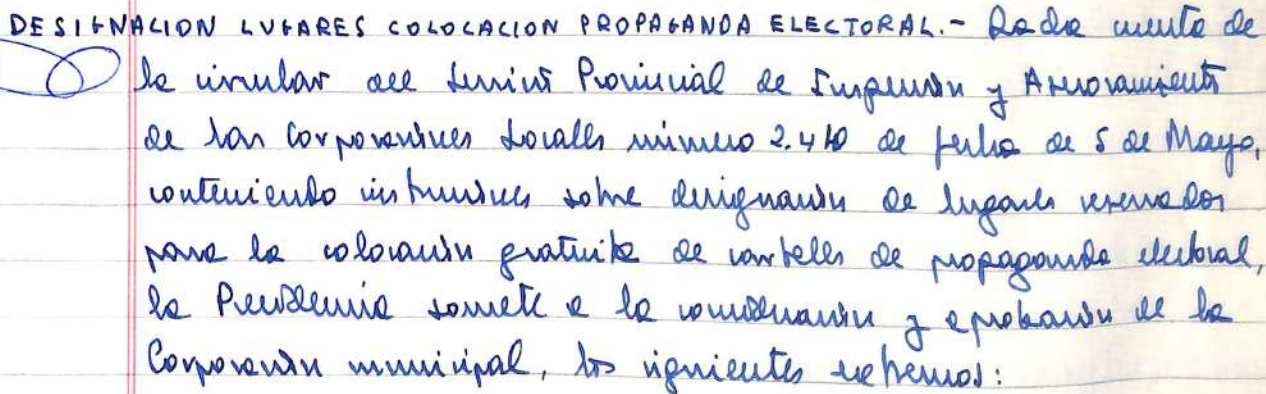 DESIGNACION LUGARES COLOCACION PROPAGANDA ELECTORAL.- Dada cuenta de
la circular del Servicio Provincial de Inspección y Asesoramiento
de las Corporaciones Locales número 2.410 de fecha de 5 de Mayo,
conteniendo instrucciones sobre designación de lugares reservados
para la colocación gratuita de carteles de propaganda electoral,
la Presidencia somete a la consideración y aprobación de la
Corporación municipal, los siguientes extremos: